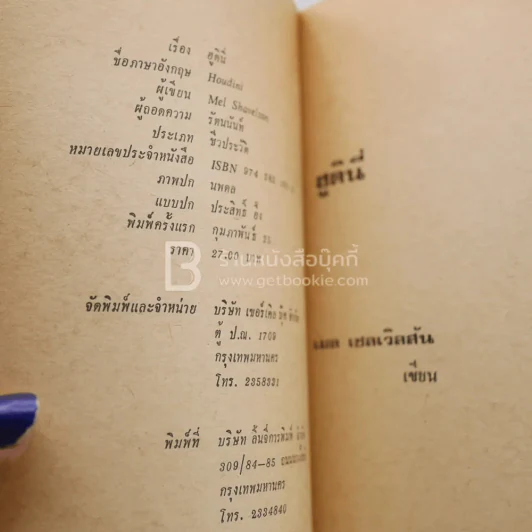 เรื่อง ฮูดินี่
ชื่อภาษาอังกฤษ Houdini
ผู้เขียน Mel Shavelson
ผู้ถอดความ รัตนนันท์
ประเภท ชีวประวัติ
หมายเลขประจำหนังสือ ISBN 974
ภาพปก นพดล
แบบปก ประสิทธิ์
พิมพ์ครั้งแรก กุมภาพันธ์
ราคา 27.00 บาท
จัดพิมพ์และจำหน่าย บริษัท เซอร์เคิล บุ๊ค จำกัด
ตู้ ป.ณ. 1709
กรุงเทพมหานคร
โทร. 2358331
พิมพ์ที่ บริษัท
309/84-85
กรุงเทพมหานคร
โทร. 2334840
ฮูดินี่
เมล เชลเวิลสัน
เขียน
B
ร้านหนังสือบุ๊คกี้
www.getbookie.com